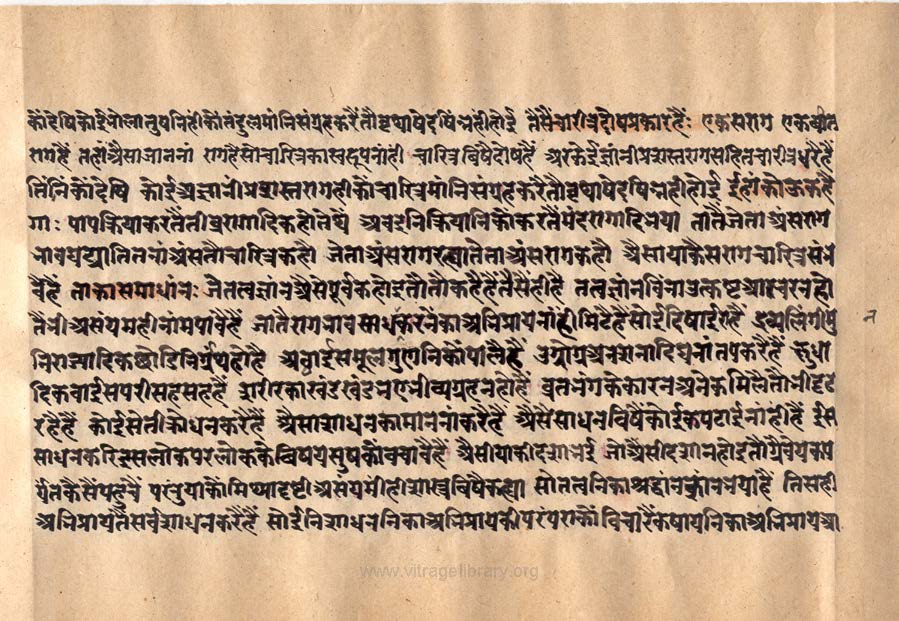 कोंदेषिकोईभोलातुषनिहीकौंतंदुलमांनिसंग्रहकरैतौवृथाषेदषिंन्नहीहोई तैसैंचारीत्रदोयप्रकारहैं: एकसराग एकवीत
रागहैं तहांअैसाजानना रागहैसोचारित्रकास्वरूपनांही चारित्रविषैदोषहैं अरकेईज्ञांनीप्रशस्तरागसहितचारीत्रधरैहैं
तिनिकोंदेषि कोईअज्ञानीप्रशस्तरागहीकौंचारित्रमांनिसंग्रहकरैतौवृथाषेदषिन्नहीहोई ईहांकोऊकहै
गा: पापक्रियाकरतैंतीव्ररागादिकहोतेथे अबइनिक्रियानिकौंकरतैंमंदरागादिभया तातैंजेताअंसराग
भावघट्यातितनांअंसतौचारित्रकहौ जेताअंसरागरह्यातेताअंसरागकहौ अैसायाकैसरागचारित्रसंभ
वैहैं ताकासमाधांन: जेतत्वज्ञानअैसेंपूर्वकहोइतौतौकहैहैंतैसैंहीहै तत्वज्ञांनबिनांउत्कृष्टआचरनहो
तैंभीअसंयमहीनांमपावैहैं जातैंरागभावसाधकरनेंकाअभिप्रायनांहीमिटैहैंसोईदिषाईएहैं द्रव्यलिंगीमु न
निराज्यादिककछाडिनिर्ग्रंथहोहै अठाईसमूलगुणनिकौंपालैहैं उग्रोग्रअनशनादिघनांतपकरैहैं क्षुधा
दिकबाईसपरीसहसहहैं शरीरकाखंडखंडभएभीव्यग्रहनहोहैं व्रतभंगकेकारनअनेकमिलैतौभीदृढ
रहैहैं कोईसेतीक्रोधनकरैहैं अैसासाधनकामाननांकरैहैं अैसेंसाधनविषैंकोईकपटाईनांहीहैं ईस
साधनकरिइसलोकपरलोककेविषयसुषकौंनचाहैहैं अैसीयाकीदशाभई जोअैसीदशानहोईतौग्रैवेयकप
र्यंतकैसेंपहुंचैं परंतुयाकौंमिथ्यादृष्टीअसंयमीहीशास्त्रविषैकह्या सोतत्वनिकाश्रद्धानज्ञाननभयाहैं तिसही
अभिप्रायतैंसर्वसाधनकरैहैं सोईनिसाधननिकाअभिप्रायकीपरंपराकौंविचारेंकषायनिकाअभिप्रायआ
www.vitragelibrary.org